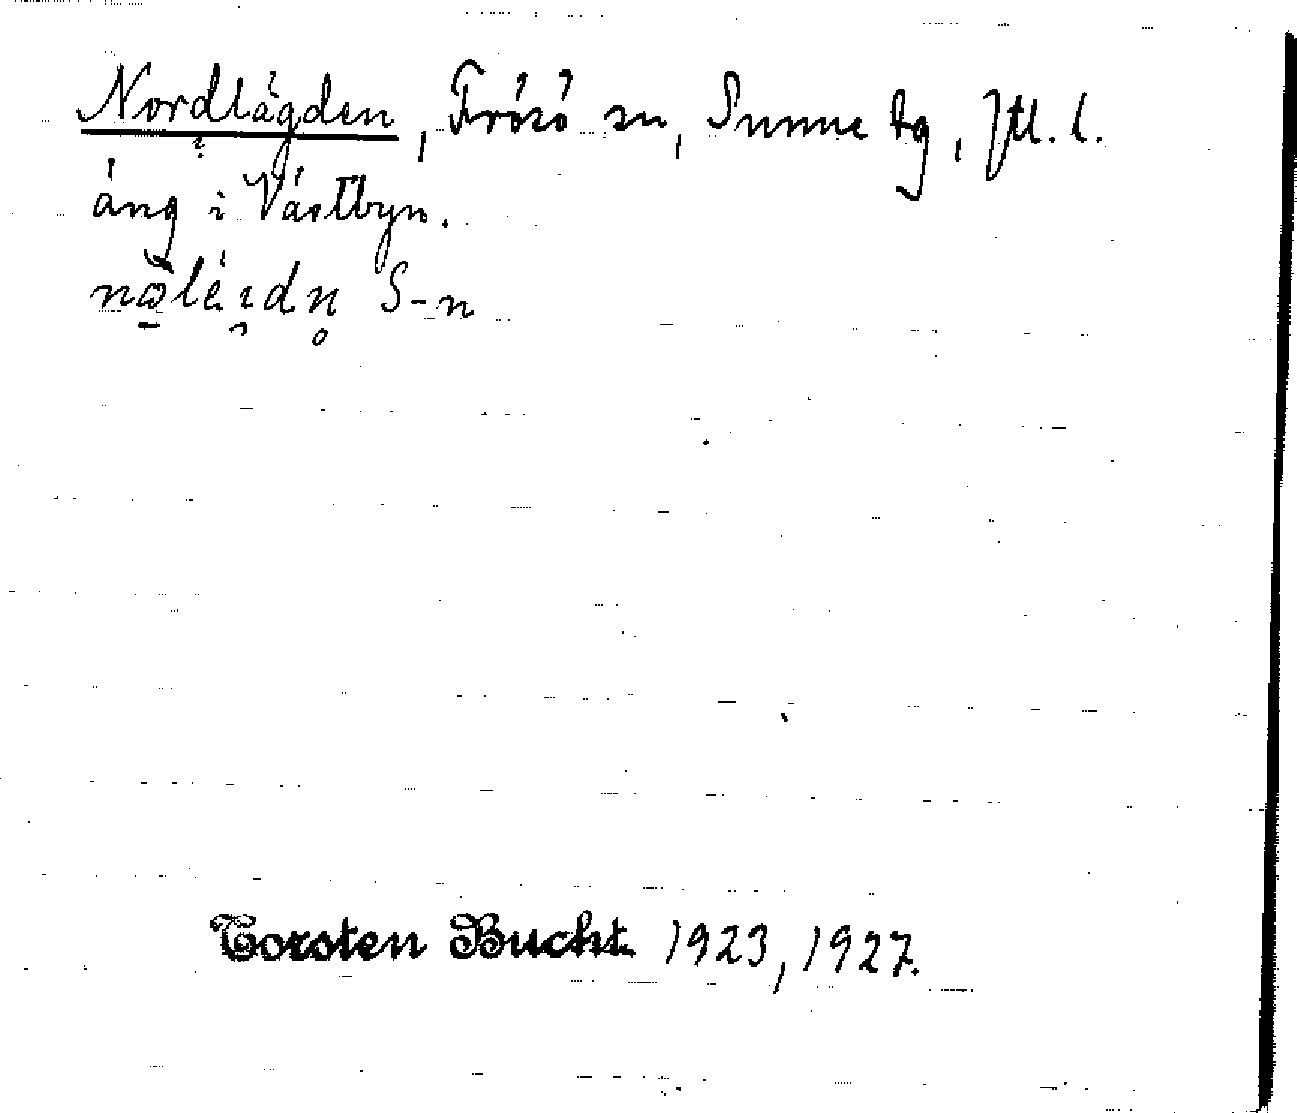 Nordlägden, Frösö sn, Sunne tg, Jtl. l.
äng i Västbyn.
S-n
Torsten Bucht 1923, 1927.